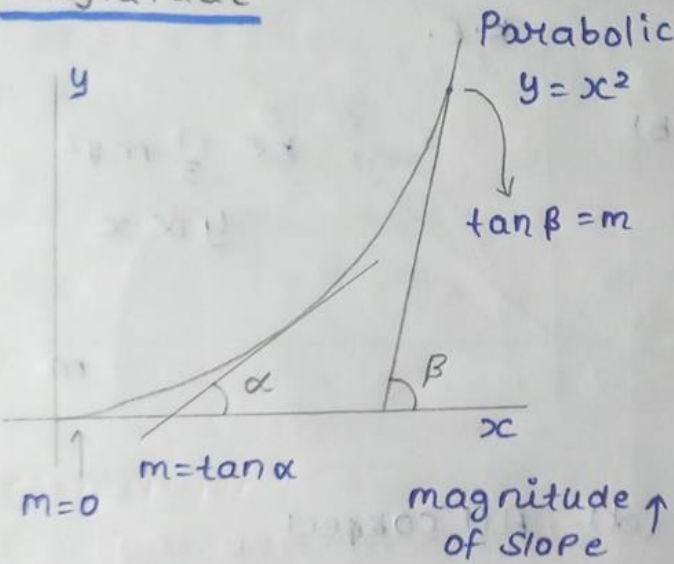 Parabolic
y
y = x²
tan β = m
α
β
x
m = tan α
m = 0
magnitude ↑
of slope